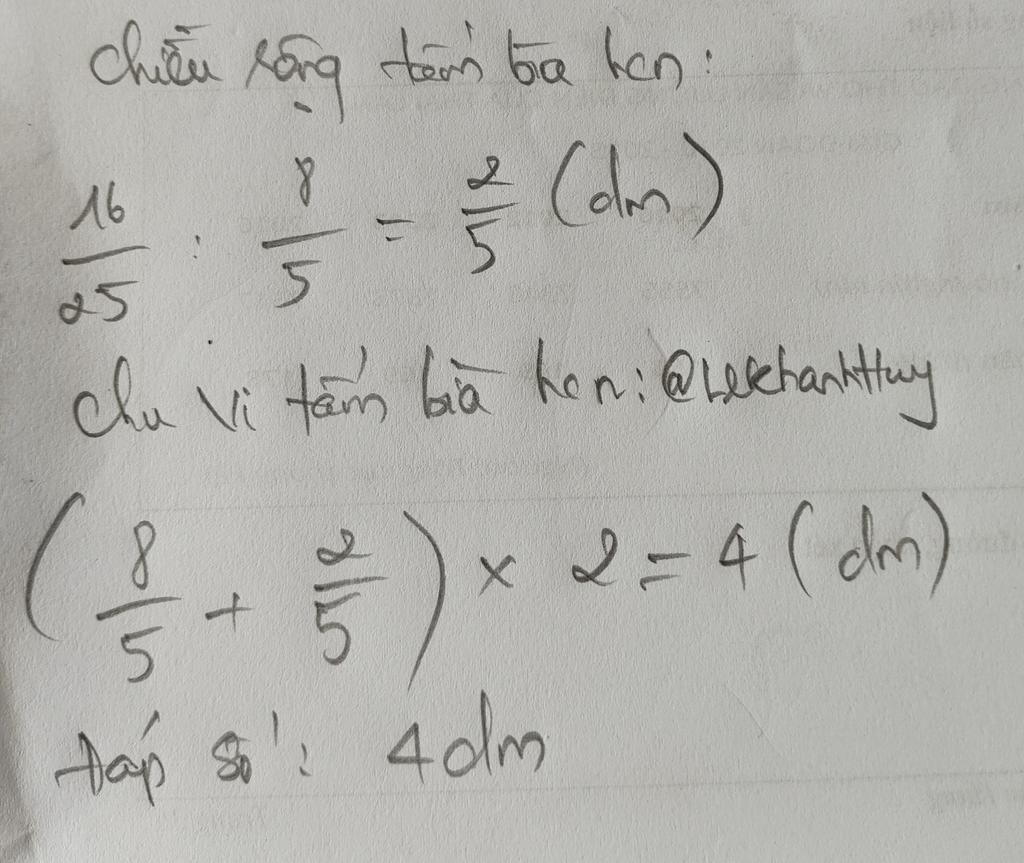 chiều rộng tấm bìa hcn:
16/25 : 8/5 = 2/5 (dm)
Chu vi tấm bìa hcn: @LeKhanhHuy
(8/5 + 2/5) × 2 = 4 (dm)
Đáp số: 4dm